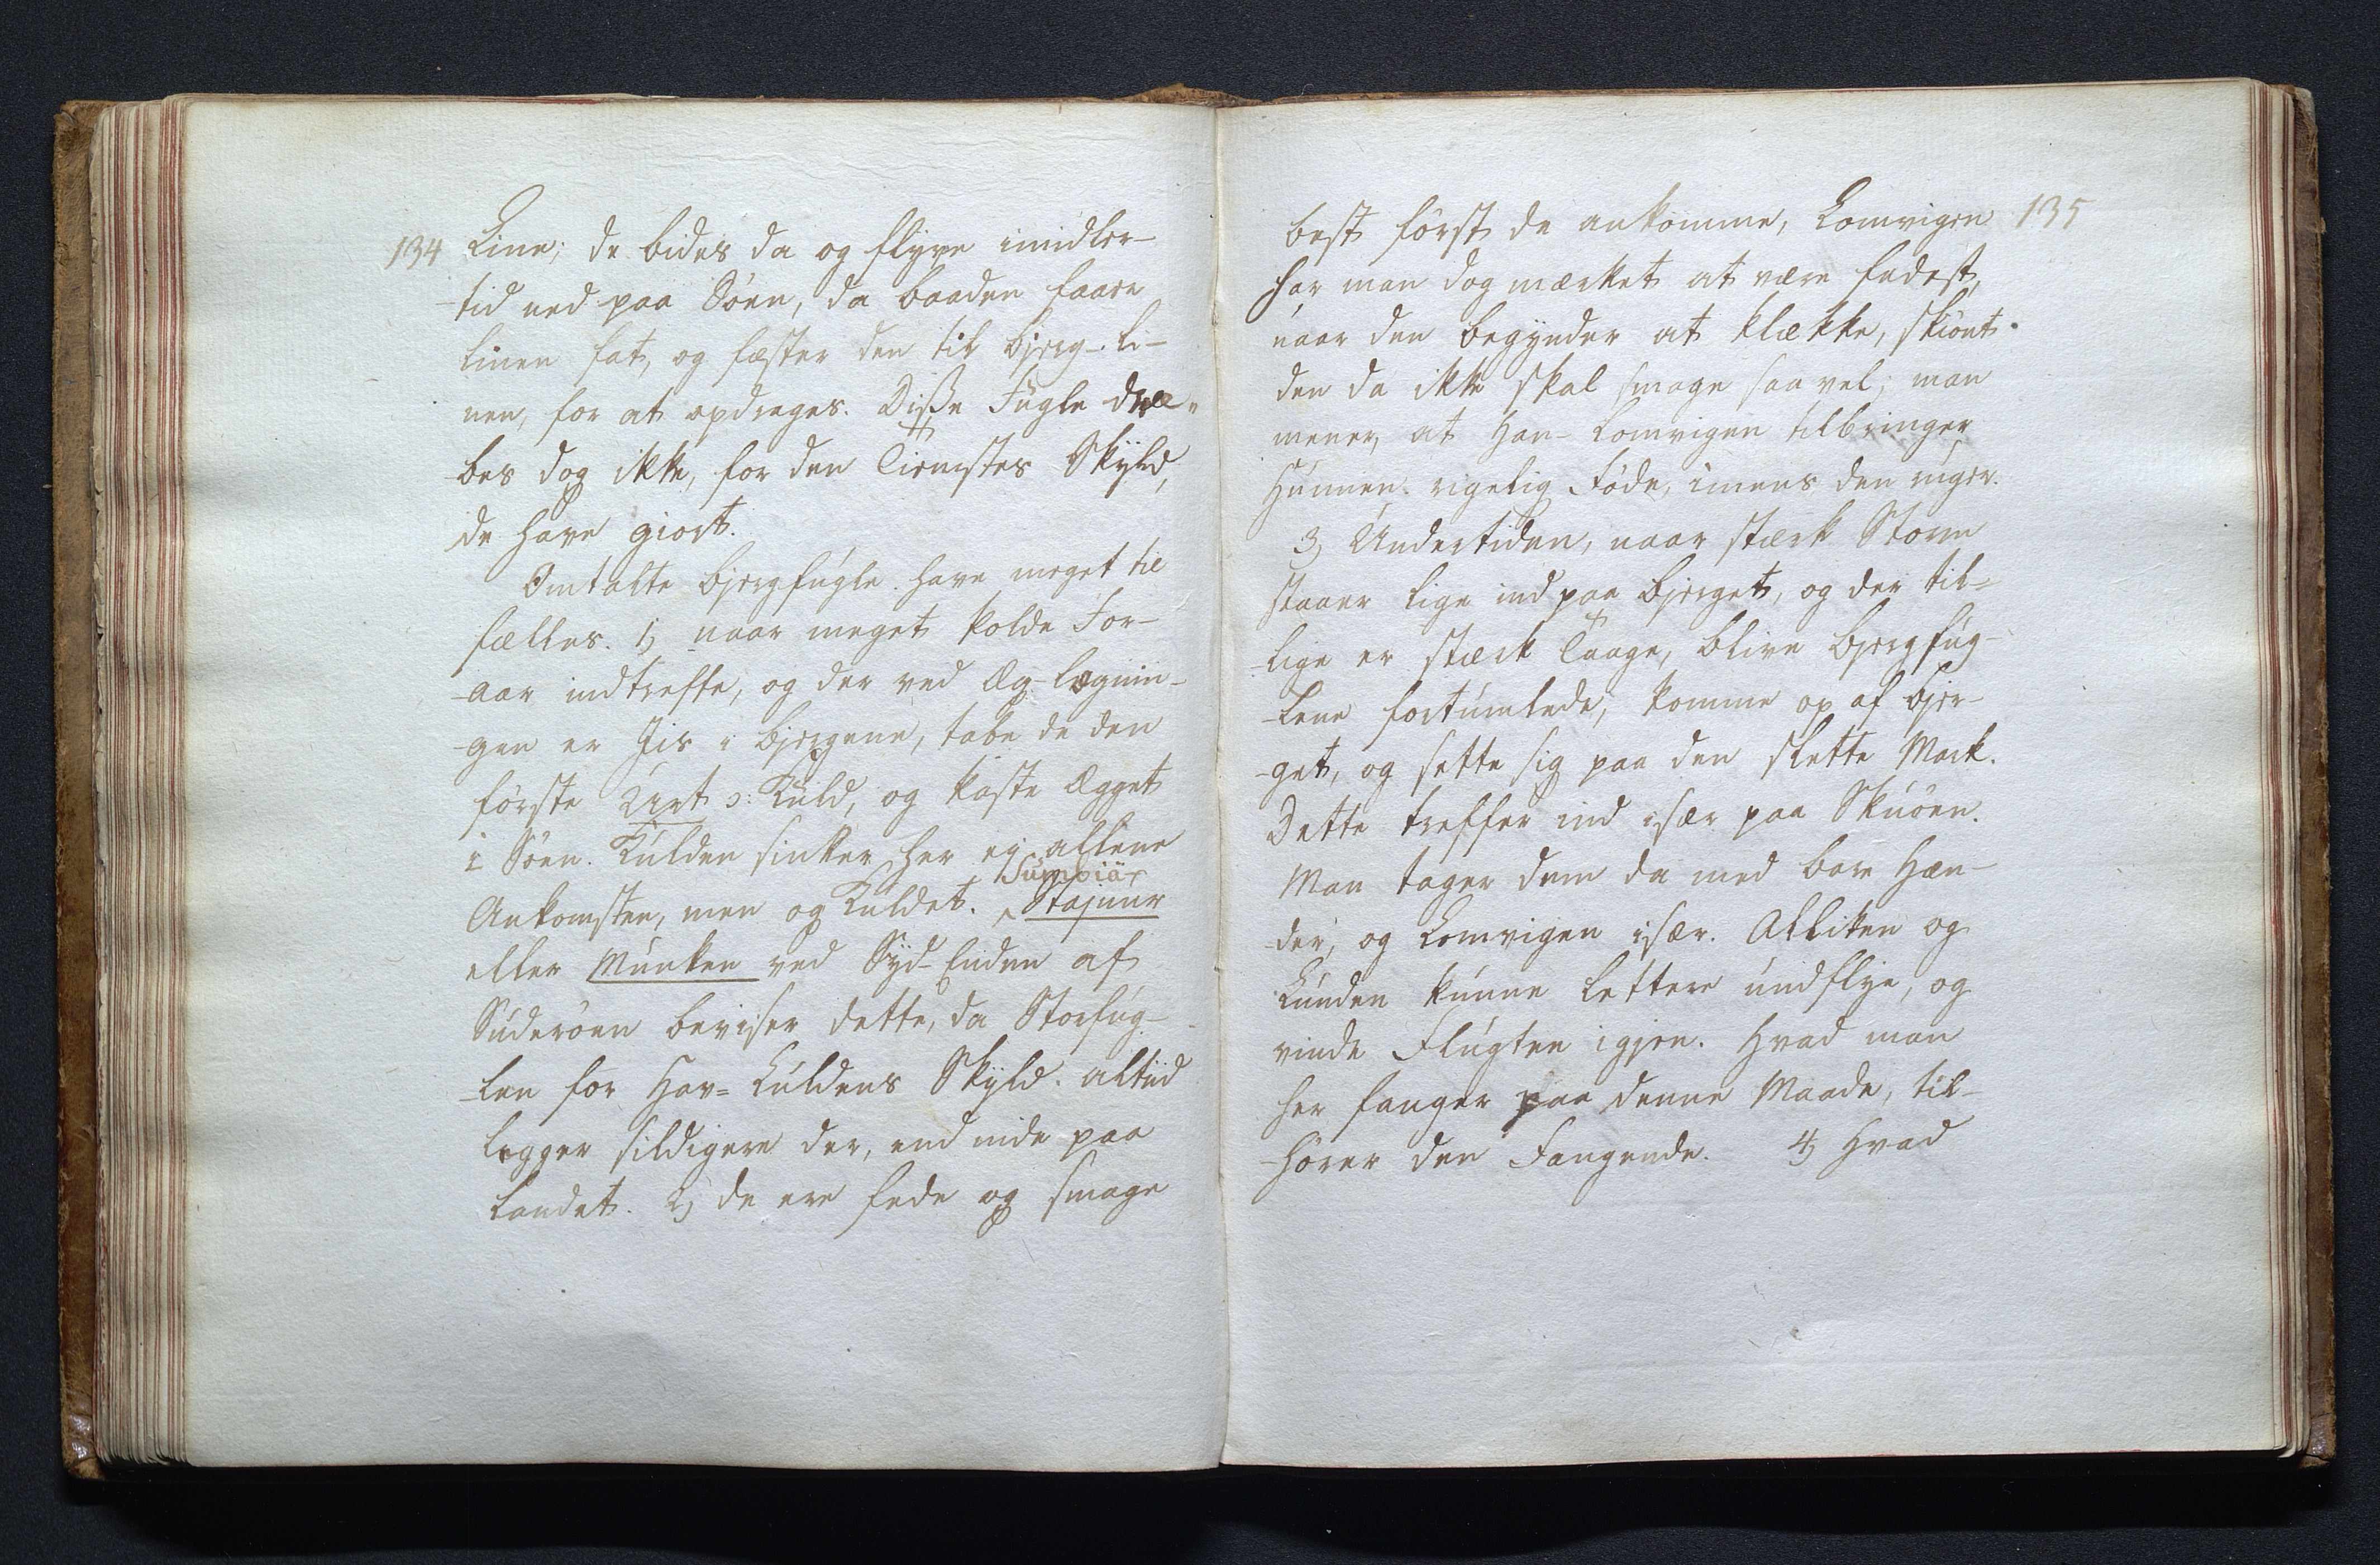 134
Line; de bides da og flyve imidler-
tid ned paa Söen, da baaden faaer
linen fat, og fæster den til bjerg-li-
nen, for at opdrages. Disse Fugle dræ-
bes dog ikke, for den Tienestes Skyld,
de have giort.
Omtalte bjergfugle have meget til
fælles. 1, naar meget kolde For-
aar indtreffe, og der ved Æg-lægnin-
gen er Jis i bjergene, tabe de den
förste Urt ɔ: Kuld, og kaste Ægget
i Söen. Kulden sinker her ej allene
Ankomsten, men og Kuldet. Sumbiär Stajnur
eller Munken ved Syd-Enden af
Suderöen beviser dette, da Storfug-
len for Hav=Kuldens Skyld altiid
legger sildigere der, end inde paa
landet. 2, de ere fede og smage
135
best först de ankomme, Lomvigen
har man dog mærket at være fedest,
naar den begynder at klække, skiönt
den da ikke skal smage saa vel; man
mener, at Han-Lomvigen tilbringer
Hunnen rigelig Föde, imens den ruger.
3, Undertiden, naar stærk Storm
staaer lige ind paa bjerget, og der til-
lige er stærk Taage, blive bjergfug-
lene fortumlede, komme op af bjer-
get, og sette sig paa den slette Mark.
Dette treffer ind især paa Skuöen.
Man tager dem da med bare Hæn-
der, og Lomvigen især. Alliken og
Lunden kunne lettere undflye, og
vinde Flugten igjen. Hvad man
her fanger paa denne Maade, til-
hörer den Fangende. 4, Hvad